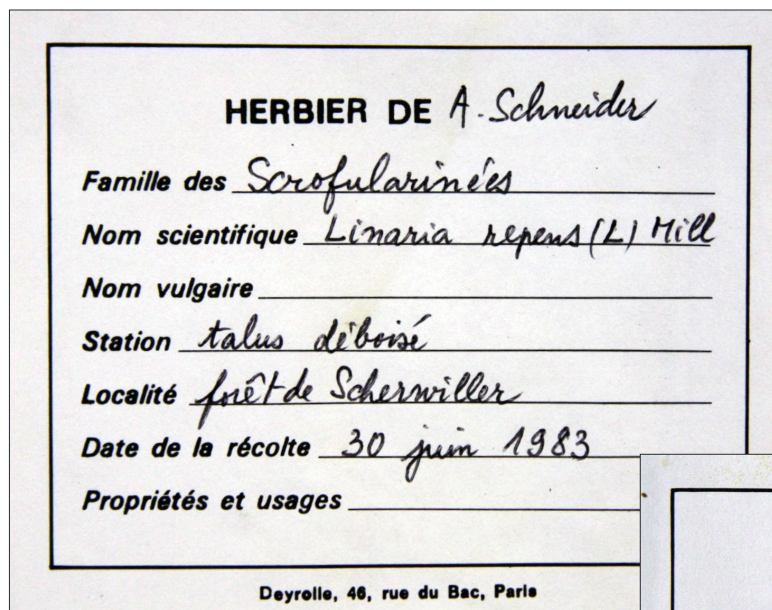 HERBIER DE A. Schneider
Famille des Scrofularinées
Nom scientifique Linaria repens (L) Mill
Nom vulgaire
Station talus déboisé
Localité forêt de Scherwiller
Date de la récolte 30 juin 1983
Propriétés et usages
Deyrolle, 46, rue du Bac, Paris